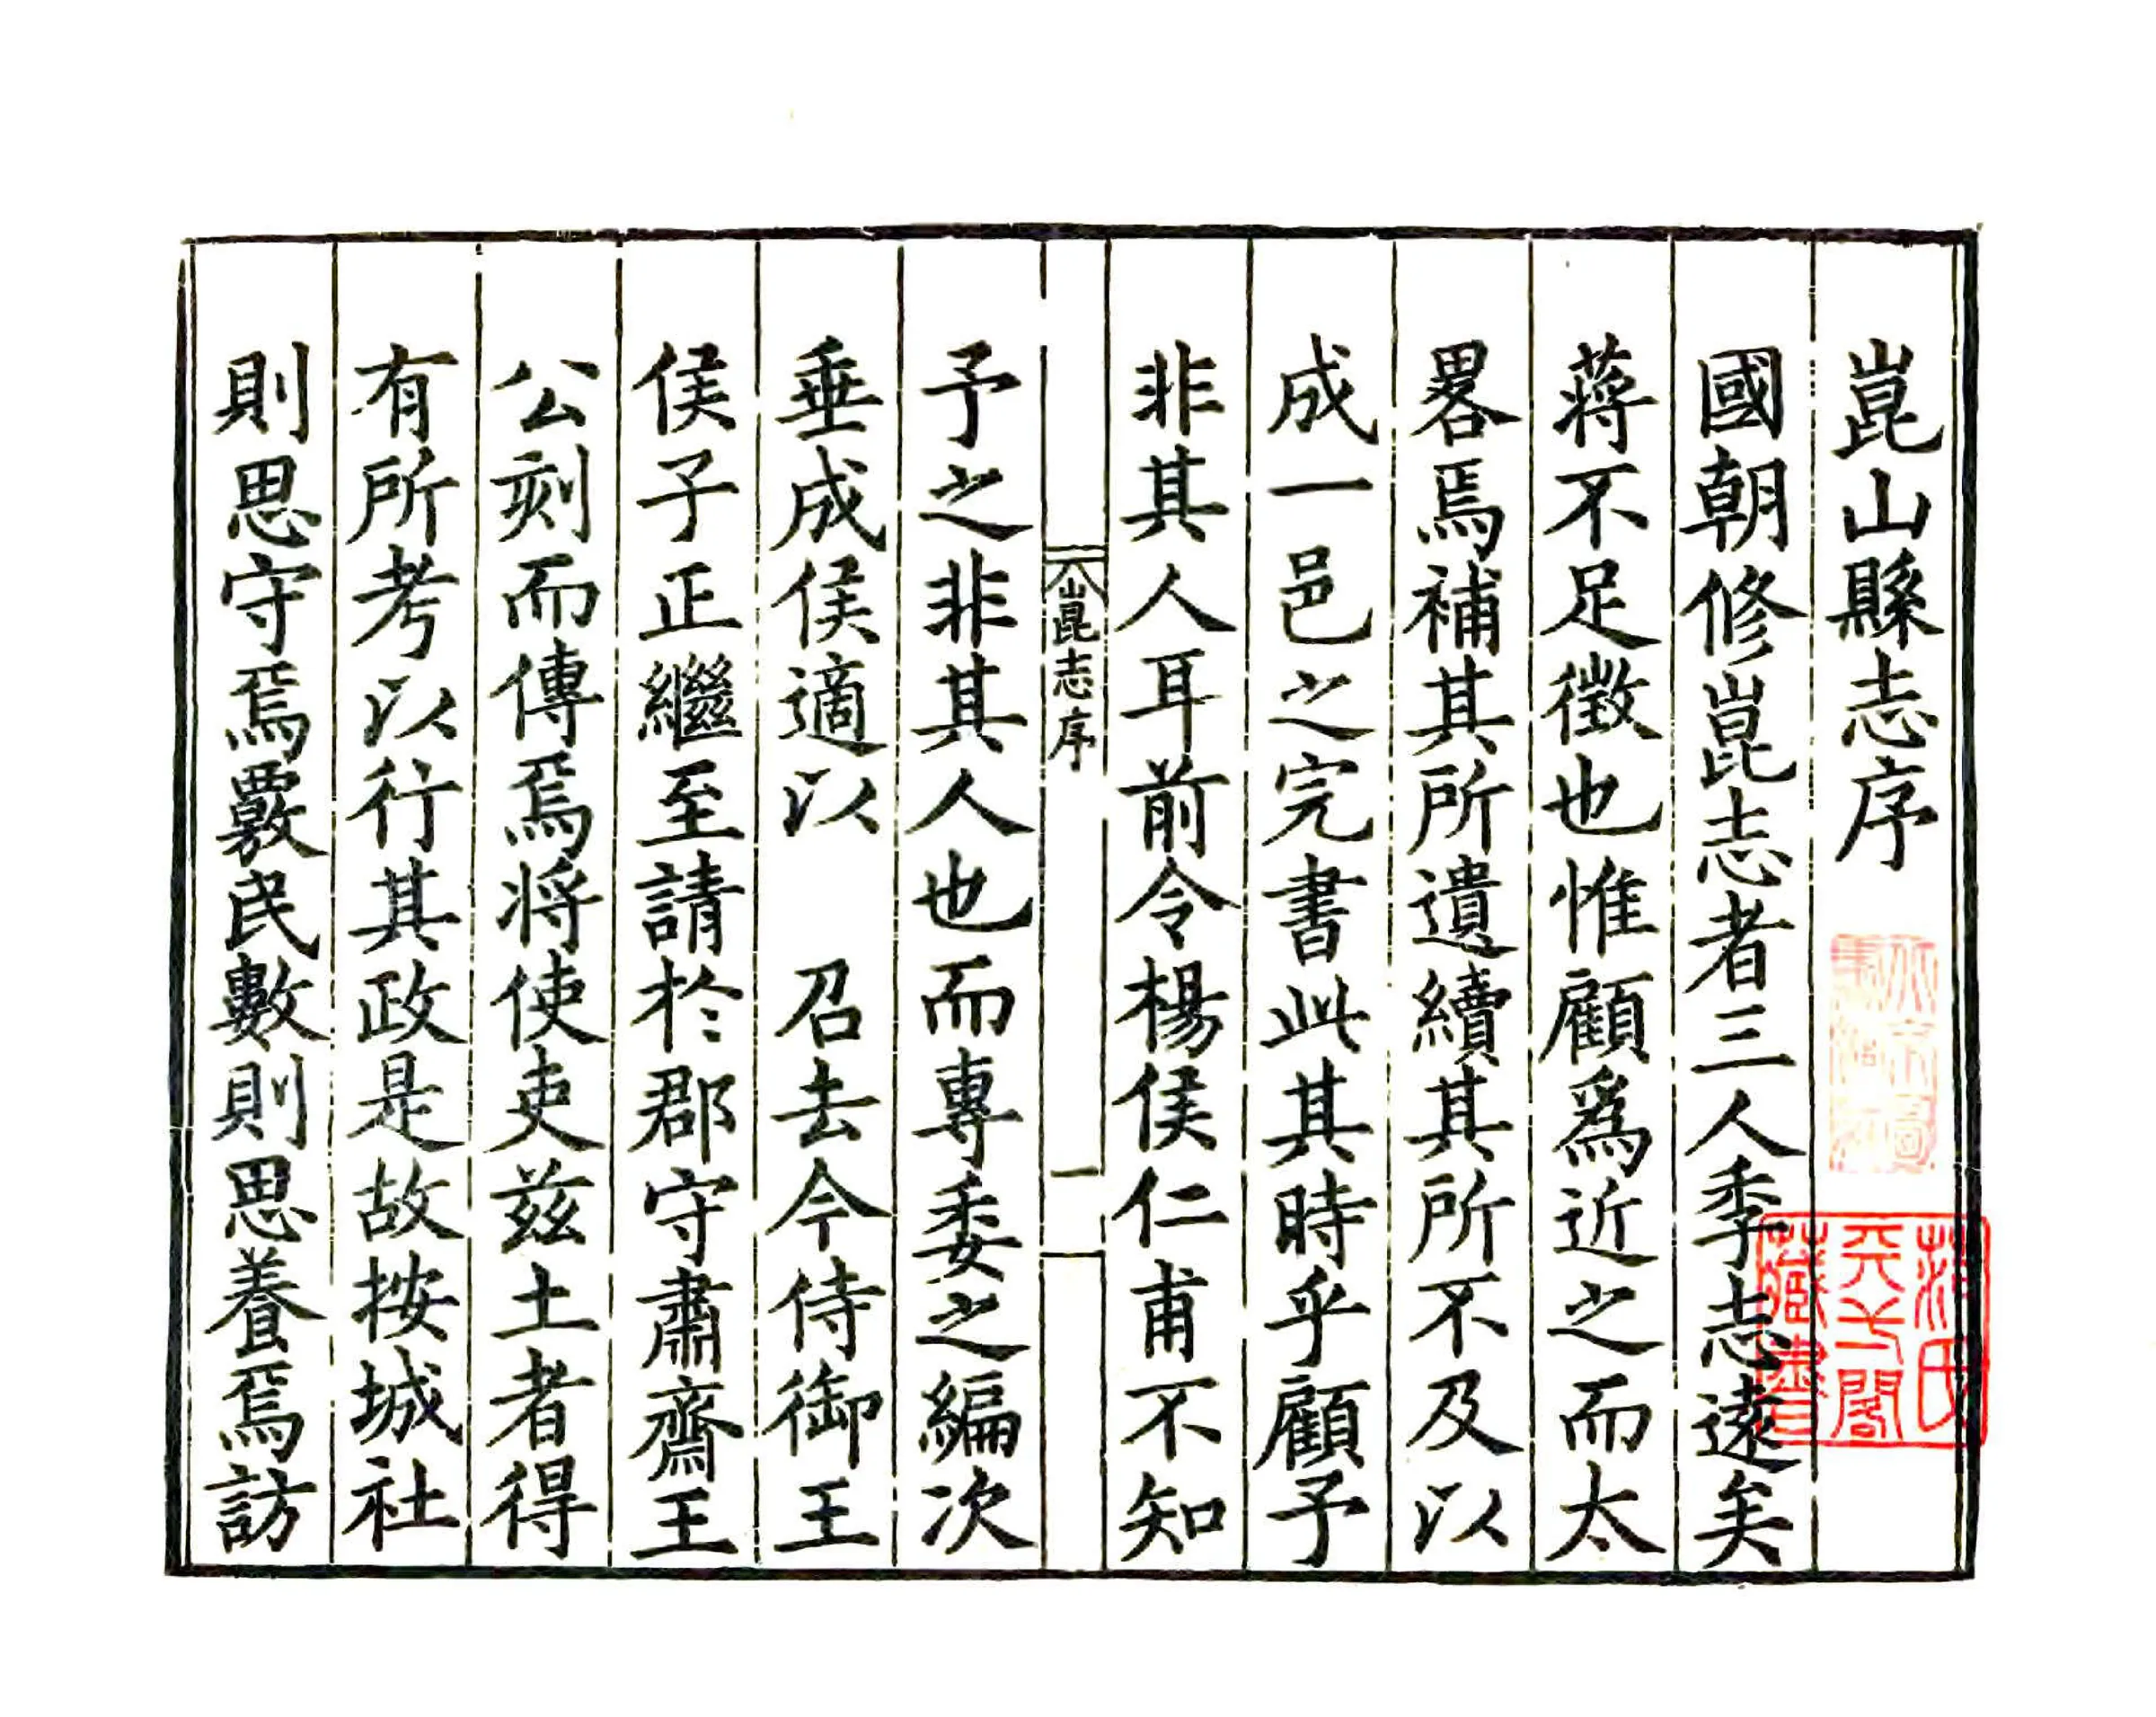 崑山縣志序
國朝修崑志者三人季志遠矣
蔣不足徵也惟顧爲近之而太
畧焉補其所遺續其所不及以
成一邑之完書此其時乎顧予
非其人耳前令楊侯仁甫不知
崑志序
一
予之非其人也而專委之編次
垂成侯適以　召去今侍御王
侯子正繼至請於郡守肅齋王
公刻而傳焉将使吏兹土者得
有所考以行其政是故按城社
則思守焉覈民數則思養焉訪
范氏天一閣藏書